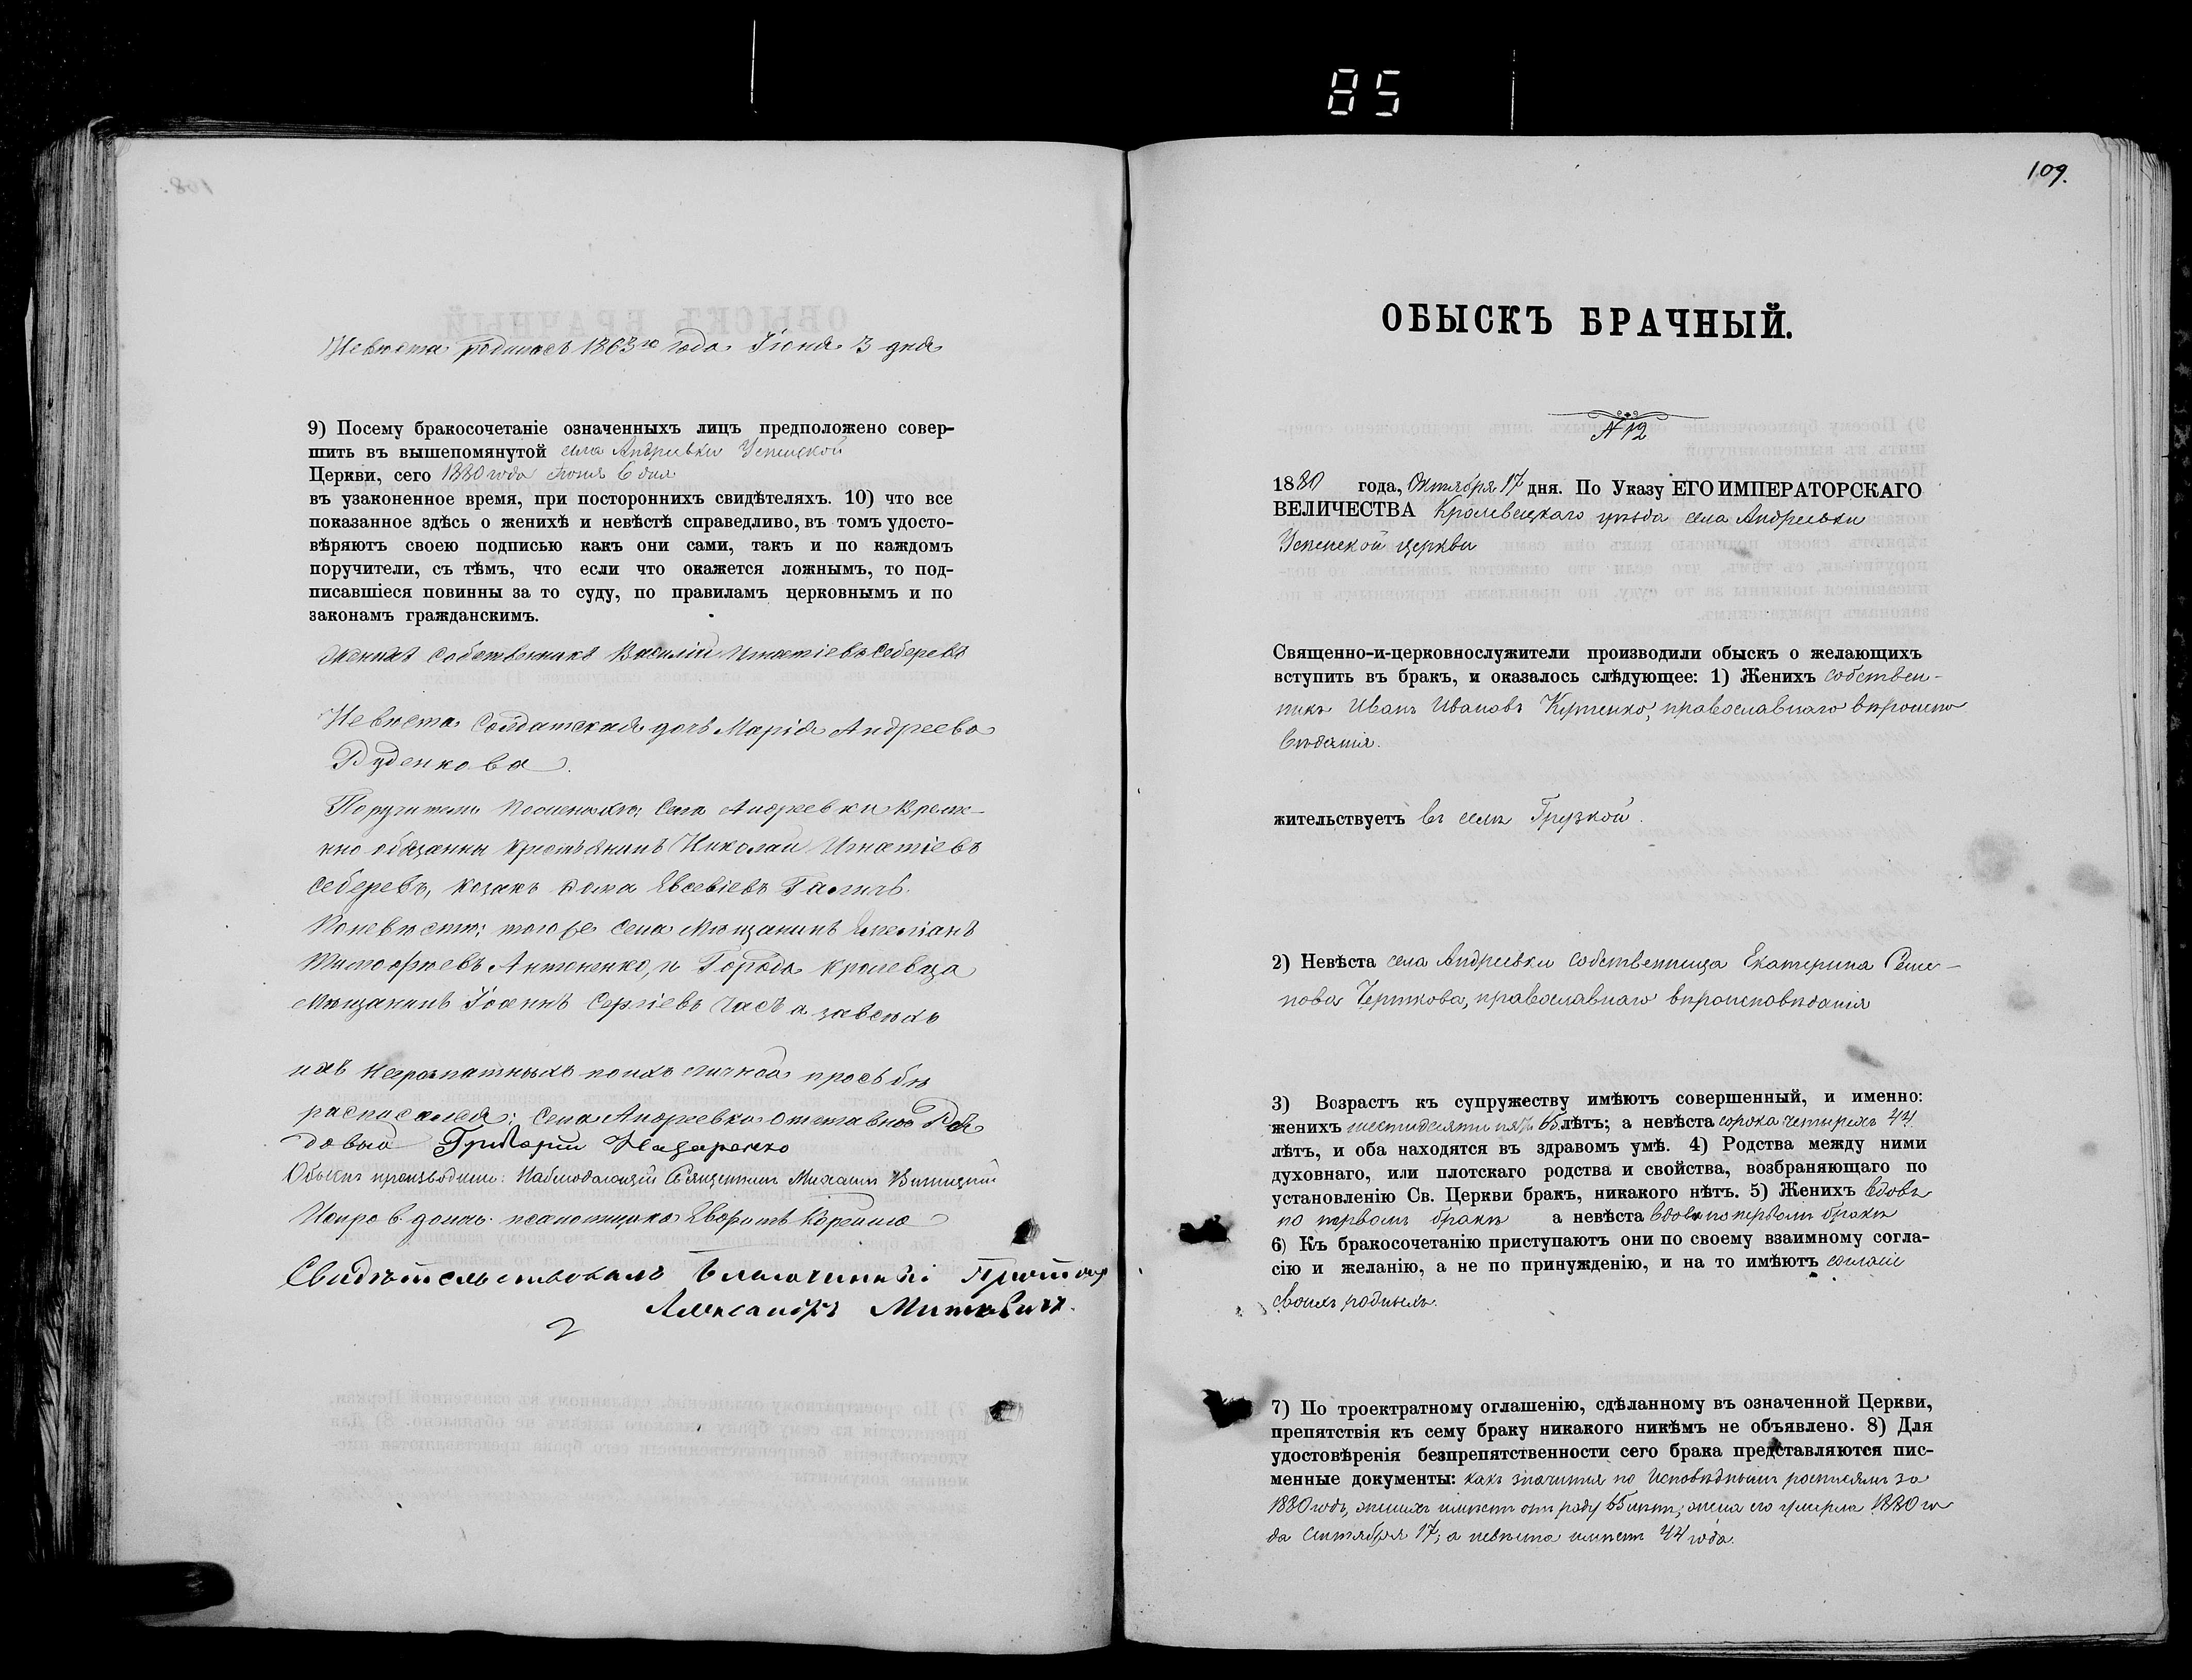 85
109.
Невѣста родилась 1863го года Іюня 3 дня
9) Посему бракосочетаніе означенныхъ лицъ предположено совер-
шить въ вышепомянутой села Андреевки Успенской
Церкви, сего 1880 года Іюня 6 дня
въ узаконенное время, при постороннихъ свидѣтеляхъ. 10) что все
показанное здѣсь о женихѣ и невѣстѣ справедливо, въ томъ удосто-
вѣряютъ своею подписью какъ они сами, такъ и по каждомъ
поручители, съ тѣмъ, что если что окажется ложнымъ, то под-
писавшіеся повинны за то суду, по правиламъ церковнымъ и по
законамъ гражданскимъ.
Женихъ Собственникъ Василій Игнатіевъ Себеревъ
Невѣста Солдатская дочь Марія Андреева
Руденкова.
Поручители По женихѣ; Села Андреевки Време-
нно обязанны крестьянинъ Николай Игнатіевъ
Себеревъ, козакъ Евсевіевъ
По невѣстѣ; того же Села Мѣщанинъ Емеліанъ
Тимофѣевъ Антоненко, и Города Кролевца
Мѣщанинъ Іоаннъ Сергіевъ Часъ а за всѣхъ
ихъ неграмотныхъ по ихъ личной просьбѣ
росписался: Села Андреевки отставной Ря
довый Григорій Назаренко
Обыскъ производили: Наблюдающій Священникъ Михаилъ
Испр. в. долж. псаломщика
Свидѣтельствовалъ Благочинный Протоіер
Александръ Миткевичъ.
ОБЫСКЪ БРАЧНЫЙ.
№ 12
1880 года, Октября 17 дня. По Указу ЕГО ИМПЕРАТОРСКАГО
ВЕЛИЧЕСТВА Кролевецкаго уѣзда села Андреевки
Успенской церкви
Священно-и-церковнослужители производили обыскъ о желающихъ
вступить въ бракъ, и оказалось слѣдующее: 1) Женихъ собствен-
никъ Иванъ Ивановъ православнаго вѣроиспо
вѣданія.
жительствуетъ въ селѣ Грузкой.
2) Невѣста села Андреевки собственница Екатерина Семе-
нова Черткова, православнаго вѣроисповѣданія
3) Возрастъ къ супружеству имѣютъ совершенный, и именно:
женихъ шестидесяти пять 65 лѣтъ; а невѣста сорока четырехъ 44
лѣтъ, и оба находятся въ здравомъ умѣ. 4) Родства между ними
духовнаго, или плотскаго родства и свойства, возбраняющаго по
установленію Св. Церкви бракъ, никакого нѣтъ. 5) Женихъ вдовъ
по первомъ бракѣ а невѣста вдова по первомъ бракѣ
6) Къ бракосочетанію приступаютъ они по своему взаимному согла-
сію и желанію, а не по принужденію, и на то имѣютъ согласіе
своихъ родныхъ.
7) По троектратному оглашенію, сдѣланному въ означенной Церкви,
препятствія къ сему браку никакого никѣмъ не объявлено. 8) Для
удостовѣренія безпрепятственности сего брака представляются пис-
менные документы: какъ значится по Исповѣднымъ росписямъ за
1880 годъ, женихъ имѣетъ отъ роду 65 лѣтъ; жена его умерла 1880 го
да Сентября 17; а невѣста имѣетъ 44 года.